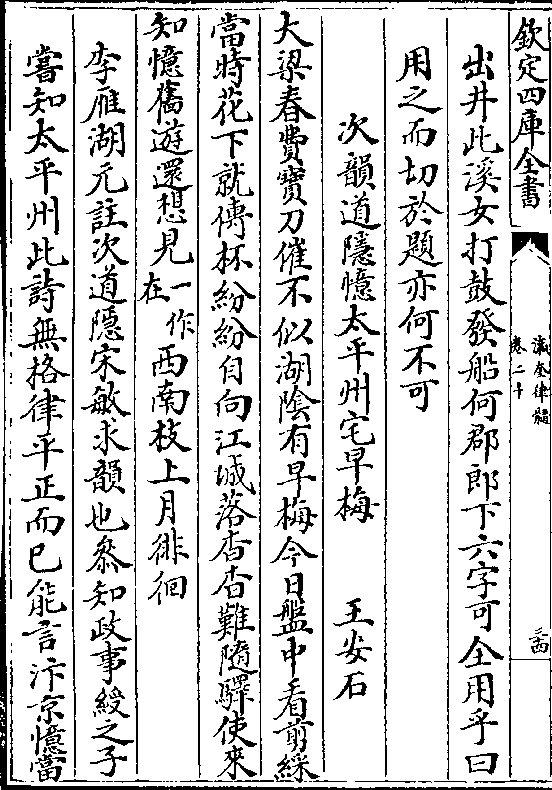 欽定四庫全書
瀛奎律髓
卷二十
出井此溪女打鼓發船何郡郎下六字可全用乎曰
用之而切於題亦何不可
次韻道隱憶太平州宅早梅 王安石
大梁春費寶刀催不似湖陰有早梅今日盤中看剪綵
當時花下就傳杯紛紛自向江城落杳杳難隨驛使來
知憶舊遊還想見一作在西南枝上月徘徊
李雁湖元註次道隱宋敏求韻也叅知政事綬之子
嘗知太平州此詩無格律平正而已能言汴京憶當